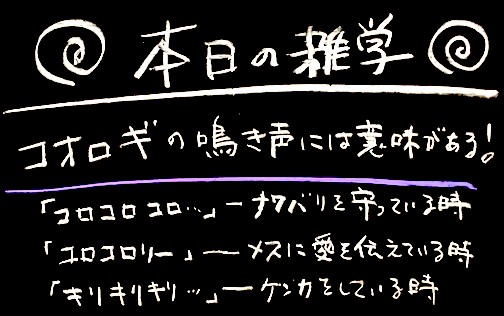 本日の雑学
コオロギの鳴き声には意味がある!
「コロコロコロ…」ーナワバリを守っている時
「コロコロリー」ーメスに愛を伝えている時
「キリキリキリ…」ーケンカをしている時